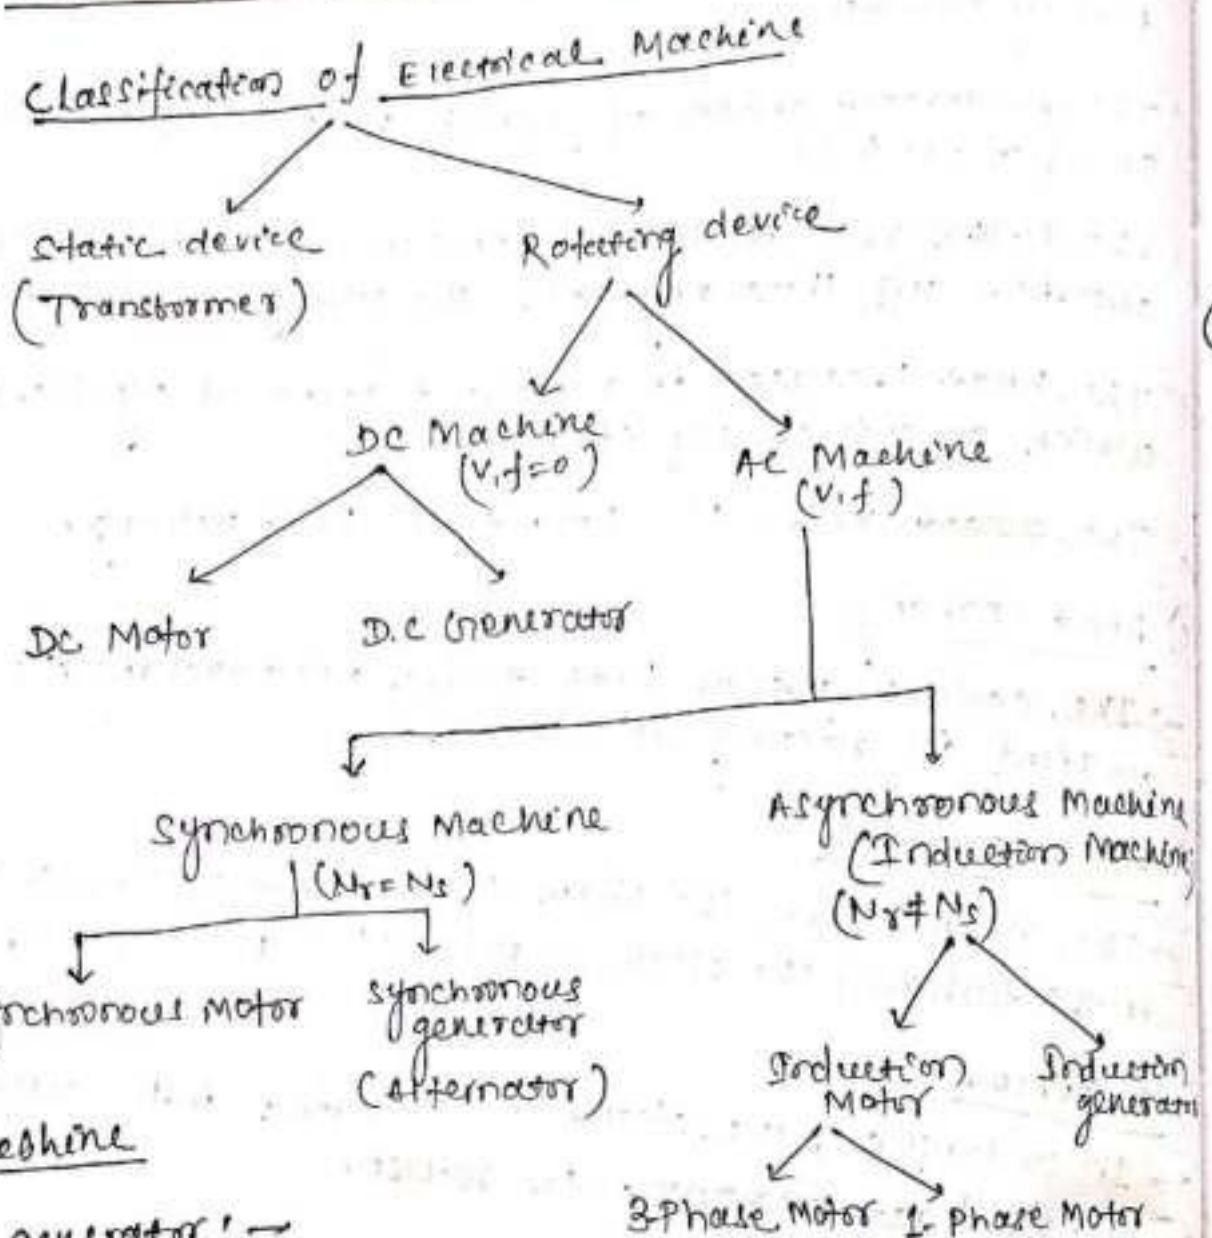 Classification of Electrical Machine
Static device
(Transformer)
Rotating device
DC Machine
(V, f=0)
AC Machine
(V, f)
D.C Motor
D.C Generator
Synchronous Machine
(Nr = Ns)
Asynchronous Machine
(Induction Machine
(Nr ≠ Ns)
nchronous Motor
synchronous
generator
(Alternator)
Induction
Motor
Induction
generator
3-Phase Motor
1-Phase Motor
achine
generator :→